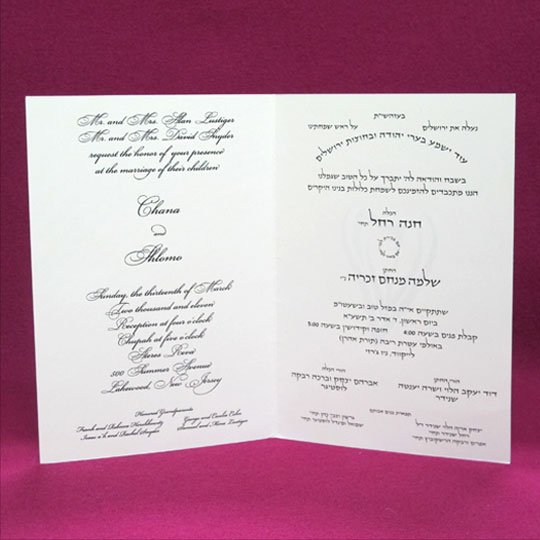 Mr. and Mrs. Alan Lustiger
Mr. and Mrs. David Snyder
request the honor of your presence
at the marriage of their children
Chana
and
Shlomo
Sunday, the thirteenth of March
Two thousand and eleven
Reception at four o'clock
Chupah at five o'clock
Ateres Reva
500 Summer Avenue
Lakewood, New Jersey
Honored Grandparents
Frank and Rebecca
George and Cecilia
Isaac and Rachel Snyder
Samuel and Lustiger
בעזהשי״ת
נעלה את ירושלים
על ראש שמחתינו
עוד ישמע בערי יהודה ובחוצות ירושלים
בשבח והודאה לה׳ יתברך על כל הטוב שגמלנו
הננו מתכבדים להזמינכם לשמחת כלולות בנינו היקרים
הכלה
חנה רחל תחי׳
החתן
שלמה מנחם זכריה ני״ו
שתתקיים אי״ה במזל טוב ובשעטו״מ
ביום ראשון, ז׳ אדר ב׳ תשע״א
קבלת פנים בשעה 4:00 חופה וקידושין בשעה 5:00
באולמי עטרת ריבה
לייקווד, ניו ג׳רזי
הורי הכלה
אברהם יצחק וברכה רבקה
לוסטיגער
הורי החתן
דוד יעקב הלוי ושרה יענטה
שניידר